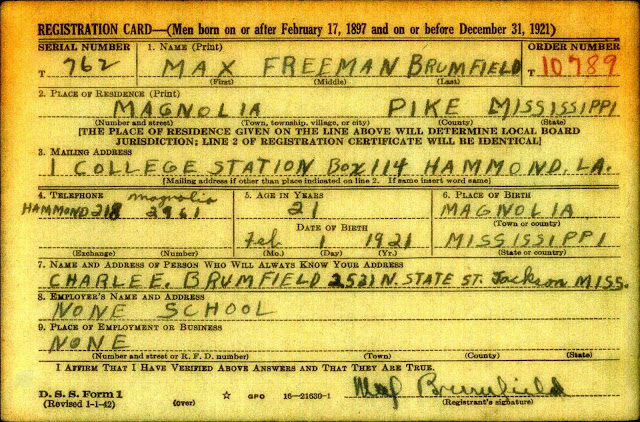 REGISTRATION CARD—(Men born on or after February 17, 1897 and on or before December 31, 1921)
SERIAL NUMBER 1. NAME (Print) ORDER NUMBER
T 762 MAX FREEMAN BRUMFIELD T 10789
(First) (Middle) (Last)
2. PLACE OF RESIDENCE (Print)
MAGNOLIA PIKE MISSISSIPPI
(Number and street) (Town, township, village, or city) (County) (State)
[THE PLACE OF RESIDENCE GIVEN ON THE LINE ABOVE WILL DETERMINE LOCAL BOARD
JURISDICTION; LINE 2 OF REGISTRATION CERTIFICATE WILL BE IDENTICAL]
3. MAILING ADDRESS
1 COLLEGE STATION BOX 114 HAMMOND, LA.
[Mailing address if other than place indicated on line 2. If same insert word same]
4. TELEPHONE 5. AGE IN YEARS 6. PLACE OF BIRTH
magnolia
HAMMOND 218 2961 21 MAGNOLIA
(Town or county)
DATE OF BIRTH
Feb 1 1921 MISSISSIPPI
(Exchange) (Number) (Mo.) (Day) (Yr.) (State or country)
7. NAME AND ADDRESS OF PERSON WHO WILL ALWAYS KNOW YOUR ADDRESS
CHARLE E. BRUMFIELD 2521 N. STATE ST. Jackson MISS.
8. EMPLOYER'S NAME AND ADDRESS
NONE SCHOOL
9. PLACE OF EMPLOYMENT OR BUSINESS
NONE
(Number and street or R. F. D. number) (Town) (County) (State)
I AFFIRM THAT I HAVE VERIFIED ABOVE ANSWERS AND THAT THEY ARE TRUE.
D. S. S. Form 1
(Revised 1-1-42) (over) ☆ GPO 16—21630-1 Brumfield
(Registrant's signature)